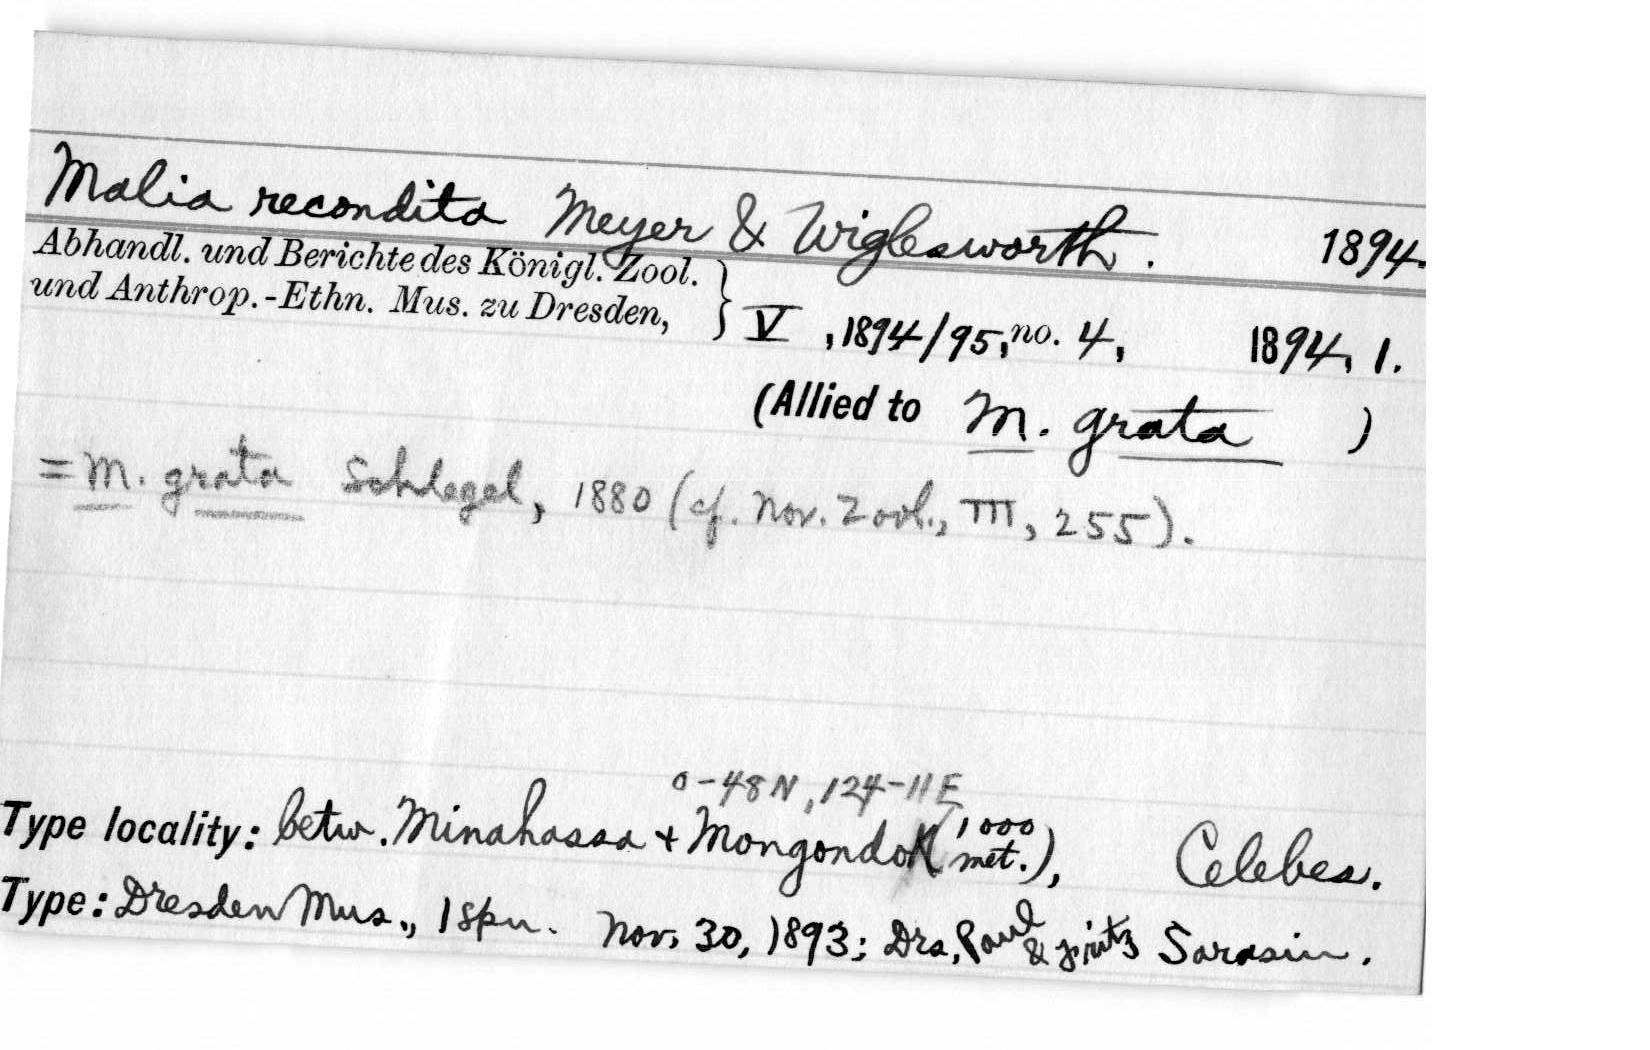 Malia recondita Meyer & Wiglesworth. 1894.
Abhandl. und Berichte des Königl. Zool.
und Anthrop.-Ethn. Mus. zu Dresden, } V, 1894/95, no. 4, 1894, 1.
(Allied to M. grata )
= M. grata Schlegel, 1880 (cf. Nov. Zool., III, 255).
0-48N, 124-11E
Type locality: betw. Minahassa + Mongondo (1000 met.), Celebes.
Type: Dresden Mus., 1 spn. Nov. 30, 1893; Drs. Paul & Fritz Sarasin.